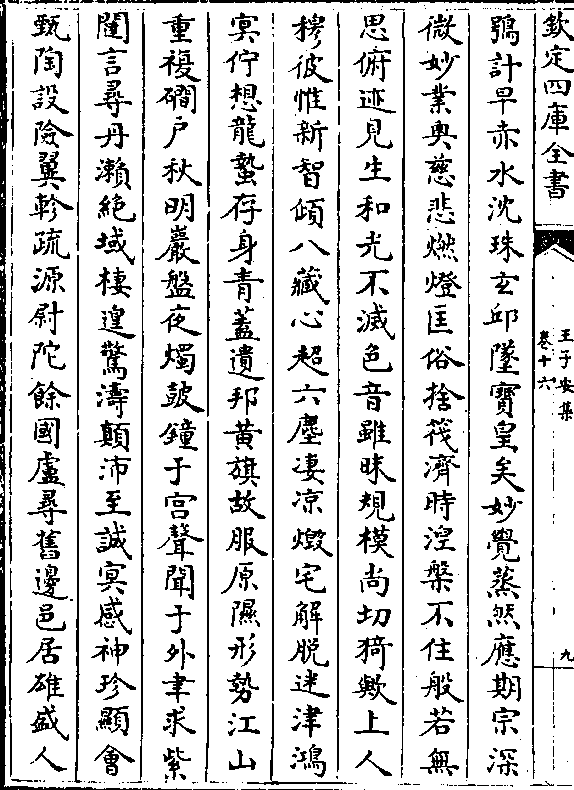 欽定四庫全書
王子安集
卷十六
九
鶚計早赤水沈珠玄邱墜寶皇矣妙覺蒸然應期宗深
微妙業奥慈悲燃燈匡俗捨筏濟時湼槃不住般若無
思俯迹見生和光不滅色音雖昧規模尚切猗歟上人
穆彼惟新智傾八藏心超六塵凄凉燬宅解脱迷津鴻
㝠佇想龍蟄存身青蓋遺邦黄旗故服原隰形勢江山
重複磵户秋明巖盤夜燭皷鐘于宫聲聞于外聿求紫
闥言尋丹瀨絶域棲遑驚濤顛沛至誠㝠感神珍顯會
甄陶設險翼軫疏源尉陀餘國盧尋舊邊邑居雄盛人